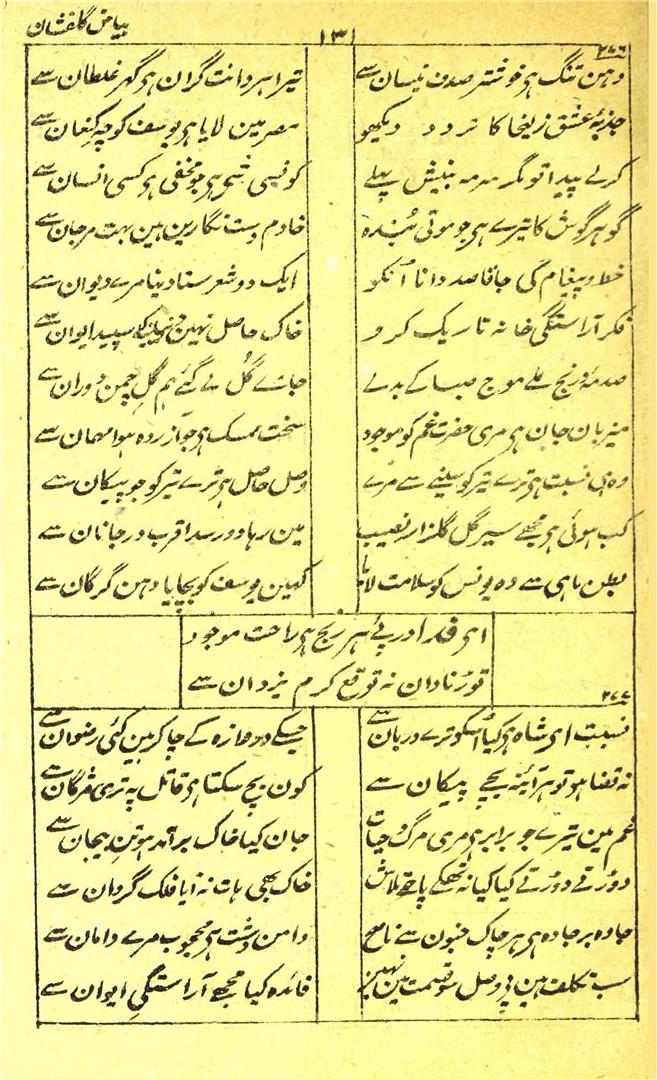 بیاض گلفشان
۱۳۱
۲۷۶
دہن تنگ ہی خوشتر صدف نیسان سے
تیرا ہر دانت گران ہی گہر غلطان سے
جذبۂ عشق زلیخا کا ذرد و دیکھو
مصر مین لایا ہی یوسف کو چہ کنعان سے
کرلے پیدا تو مگر سرمہ بینش پہلے
کونسی شی ہی جو مخفی ہی کسی انسان سے
گوہر گوش کا تیرے ہی جو موتی بندہ
خادم دست نگارین ہین بہت مرجان سے
خط و پیغام کی جا قاصد دانا انکو
ایک دو شعر سنا دینا مرے دیوان سے
فکر آراستگی خانہ تاریک کرو
خاک حاصل نہین سپید ایوان سے
صدمہ و رنج ملے موج صبا کے بدلے
جائے گل لے گئے ہم گل چمن دوران سے
میزبان جان ہی مری حضرت غم کو موجود
سخت ممسک ہی جو آزردہ ہوا مہمان سے
وہی نسبت ہی ترے تیر کو سینے سے مرے
وصل حاصل ہی ترے تیر کو جو پیکان سے
کب ہوئی ہی مجھے سیر گل گلزار نصیب
مین رہا دور سدا قرب در جانان سے
بطن ماہی سے وہ یونس کو سلامت لایا
کہین یوسف کو بچایا دہن گرگان سے
ای فدا در پئے ہر رنج ہی راحت موجود
توڑ نادان نہ توقع کرم یزدان سے
۲۷۷
نسبت ای شاہ ہی کیا اسکو ترے دربان سے
جسکے دروازہ کے چاکر ہین کئی رضوان سے
نہ قضا ہو تو ہر آئینہ بچے پیکان سے
کون بچ سکتا ہی قاتل پہ تری مژگان سے
غم مین تیرے جو برابر ہی مری مرگ و حیات
جان کیا خاک برآمد ہو تن بیجان سے
دوڑتے دوڑتے کیا کیا نہ تھکے پائے تلاش
خاک بھی ہات نہ آیا فلک گردان سے
جادہ بر جادہ ہی ہر چاک جنون سے ناصح
دامن دشت ہی محجوب مرے دامان سے
سب تکلف ہین پی وصل سو قسمت مین نہین
فائدہ کیا مجھے آراستگی ایوان سے